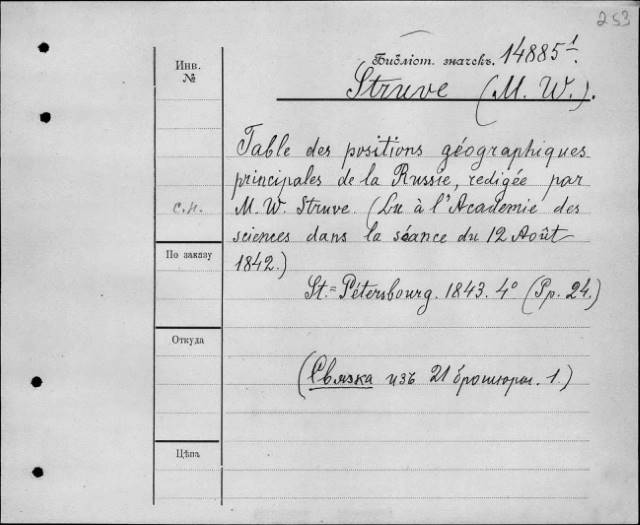 253
Инв.
№
Библіот. значекъ. 14885¹.
Struve (M. W.).
Table des positions géographiques
principales de la Russie, redigée par
M. W. Struve. (Lu à l'Academie des
с.н.
sciences dans la séance du 12 Août
По заказу
1842.)
St.=Pétersbourg. 1843. 4° (Pp. 24.)
Откуда
(Связка изъ 21 брошюры. 1.)
Цѣна